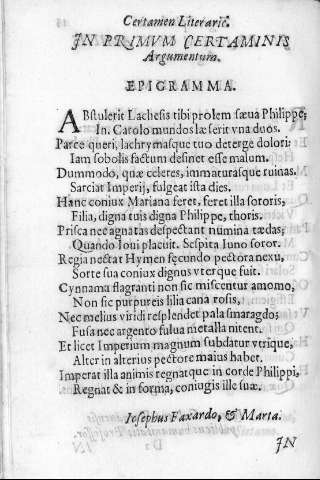 Certamen Literarie.
IN PRIMVM CERTAMINIS
Argumentum.
EPIGRAMMA.
ABstulerit Lachesis tibi prolem sæua Philippe;
In Carolo mundos læserit vna duos.
Parce queri, lachrymasque tuo deterge dolori:
Iam sobolis factum desinet esse malum.
Dummodo, quæ celeres, immaturasque ruinas.
Sarciat Imperij, fulgeat ista dies.
Hanc coniux Mariana feret, feret illa sororis,
Filia, digna tuis digna Philippe, thoris.
Prisca nec agnatas despectant numina tædas;
Quando Ioui placuit. Sespita Iuno soror.
Regia nectat Hymen fęcundo pectora nexu,
Sorte sua coniux dignus vterque fuit.
Cynnama flagranti non sic miscentur amomo,
Non sic purpureis lilia cana rosis,
Nec melius viridi resplendet pala smaragdo;
Fusa nec argento fulua metalla nitent.
Et licet Imperium magnum subdatur vtrique,
Alter in alterius pectore maius habet.
Imperat illa animis regnat que in corde Philippi,
Regnat & in forma, coniugis ille suæ.
Iosephus Faxardo, & Marta.
IN